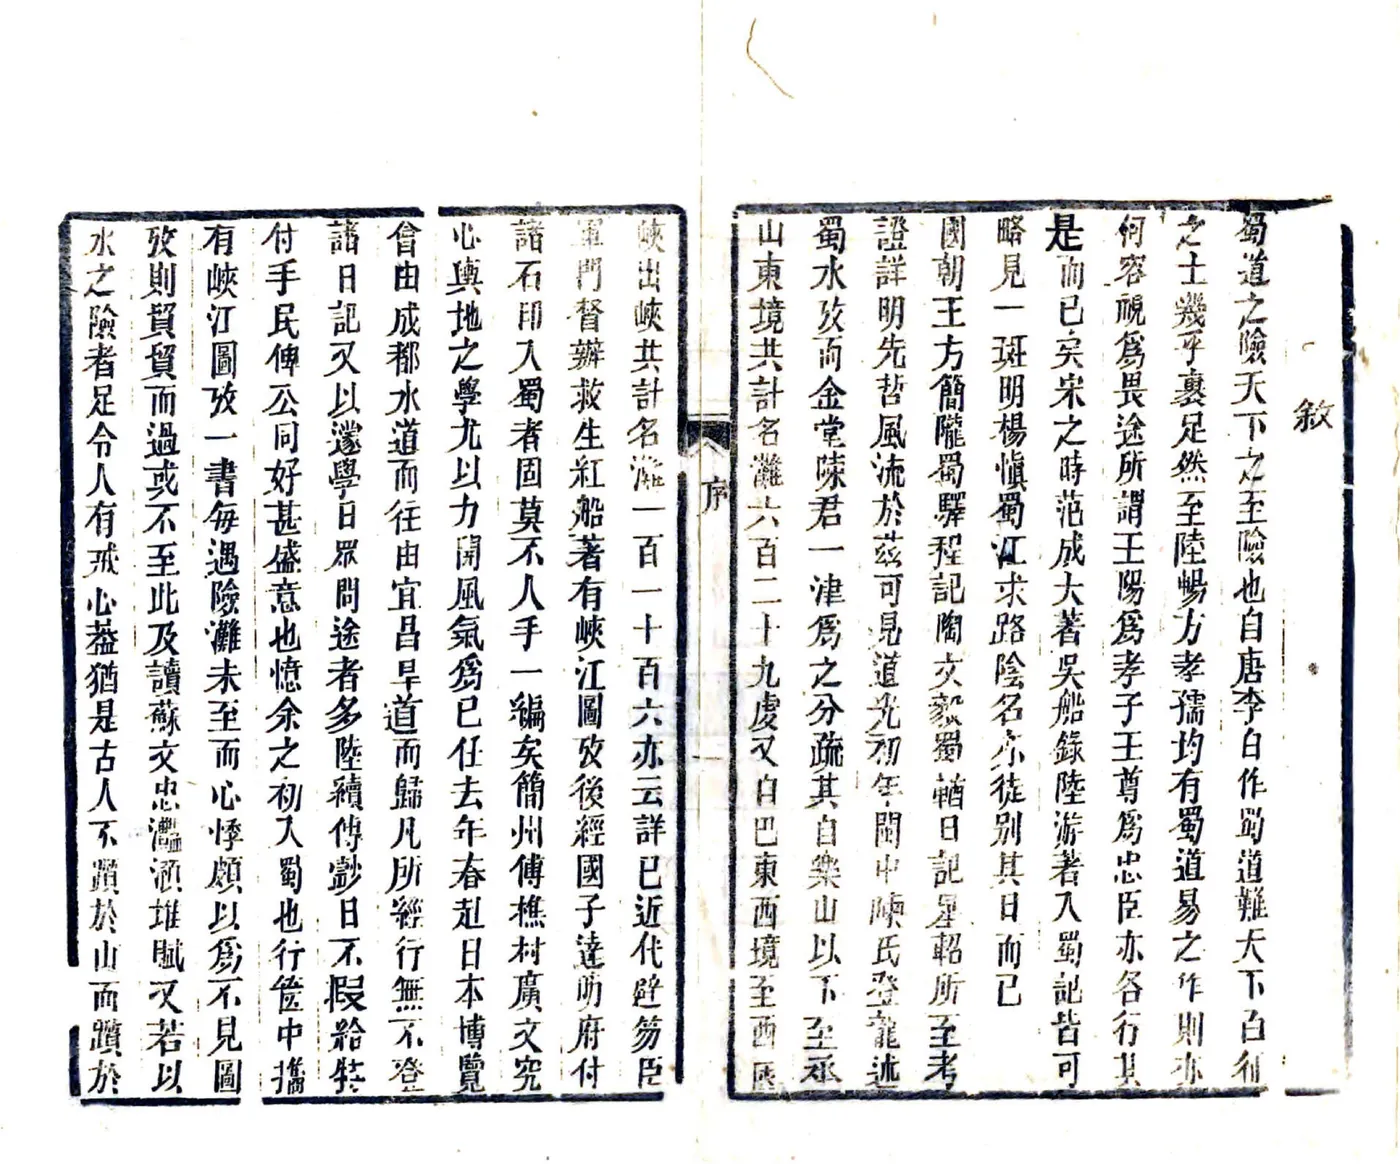 敘
蜀道之險天下之至險也自唐李白作蜀道難天下台行
之士幾乎裹足然至陸暢方孝孺均有蜀道易之作則亦
何容視為畏途所謂王陽為孝子王尊為忠臣亦各行其
是而已矣宋之時范成大著吳船錄陸游著入蜀記皆可
略見一斑明楊慎蜀江求路陰名亦徒別其日而已
國朝王方簡隴蜀驛程記陶文毅蜀輶日記星軺所至考
證詳明先哲風流於茲可見道光初年閬中陳氏登龍述
蜀水攷而金堂陳君一津為之分疏其自樂山以下至巫
山東境共計名灘六百二十九處又自巴東西境至西
峽出峽共計名灘一百一十百六亦云詳已近代辟笏臣
軍門督辦救生紅船著有峽江圖攷後經國子達明府付
諸石印入蜀者固莫不人手一編矣簡州傅樵村廣文究
心輿地之學尤以力開風氣為已任去年春赴日本博覽
會由成都水道而往由宜昌旱道而歸凡所經行無不登
諸日記又以邃學日眾問途者多陸續傳鈔日不暇給裝
付手民俾公同好甚盛意也憶余之初入蜀也行篋中攜
有峽江圖攷一書每遇險灘未至而心悸頗以為不見圖
攷則貿貿而過或不至此及讀蘇文忠灩澦堆賦又若以
水之險者足令人有戒心葢猶是古人不躓於山而躓於
序